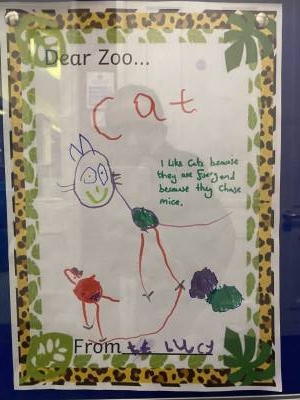 Dear Zoo...
Cat
I Like Cats because
they are furry and
because they chase
mice.
From LUCY